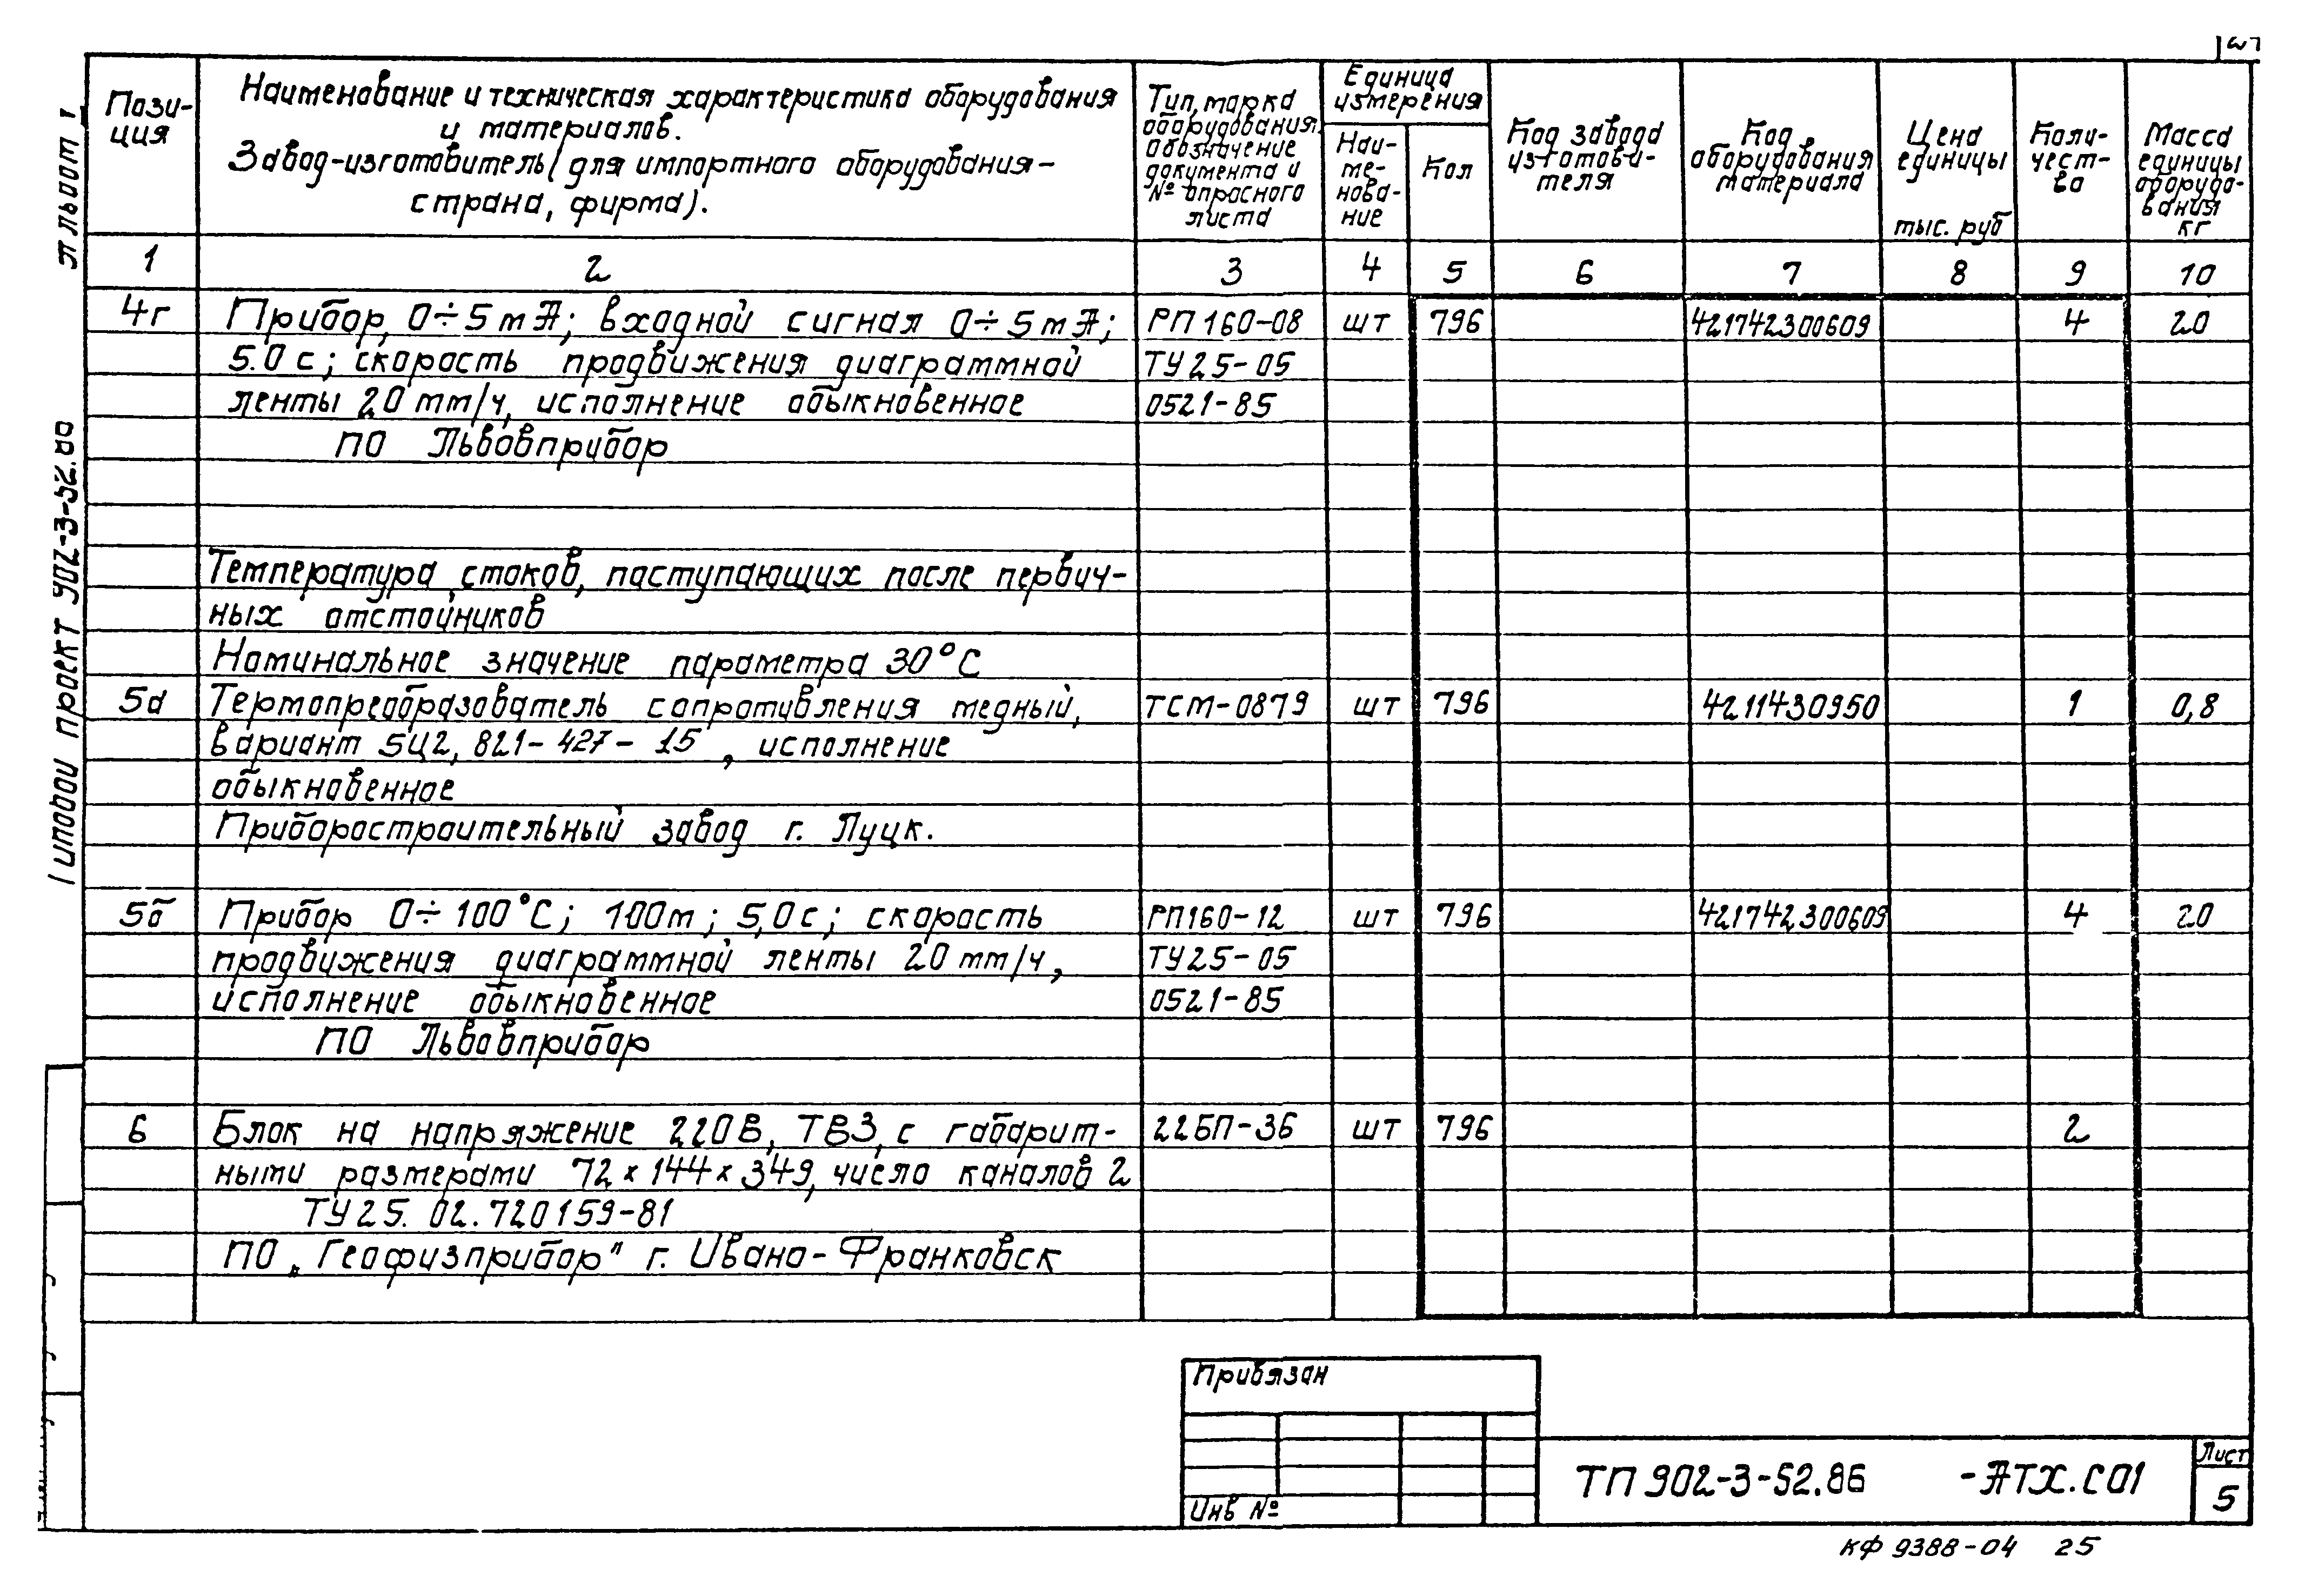 Типовой проект 902-3-52.86
Альбом
Пози-
ция
Наименование и техническая характеристика оборудования
и материалов.
Завод-изготовитель (для импортного оборудования-
страна, фирма).
Тип, марка
оборудования.
обозначение
документа и
№ опросного
листа
Единица
измерения
Наи-
ме-
нова-
ние
Кол
Код завода
изготови-
теля
Код
оборудования
материала
Цена
единицы
тыс. руб
Коли-
чест-
во
Масса
единицы
оборудо-
вания
кг
1 2 3 4 5 6 7 8 9 10
4г Прибор, 0÷5mA; входной сигнал 0÷5mA; РП160-08 шт 796 421742300609 4 20
5.0 с; скорость продвижения диаграммной ТУ25-05
ленты 20 mm/ч, исполнение обыкновенное 0521-85
ПО Львовприбор
Температура стоков, поступающих после первич-
ных отстойников
Номинальное значение параметра 30°С
5а Термопреобразователь сопротивления медный, ТСМ-0879 шт 796 4211430950 1 0,8
вариант 5Ц2, 821-427-15, исполнение
обыкновенное
Приборостроительный завод г. Луцк.
5б Прибор 0÷100°С; 100м; 5,0с; скорость РП160-12 шт 796 421742300609 4 20
продвижения диаграммной ленты 20 mm/ч, ТУ25-05
исполнение обыкновенное 0521-85
ПО Львовприбор
6 Блок на напряжение 220В, ТВ3, с габарит- 22БП-36 шт 796 2
ными размерами 72×144×349, число каналов 2
ТУ25.02.720159-81
ПО „Геофизприбор" г. Ивано-Франковск
Привязан
Инв №
ТП 902-3-52.86 -АТХ.СО1
Лист
5
КФ 9388-04 25